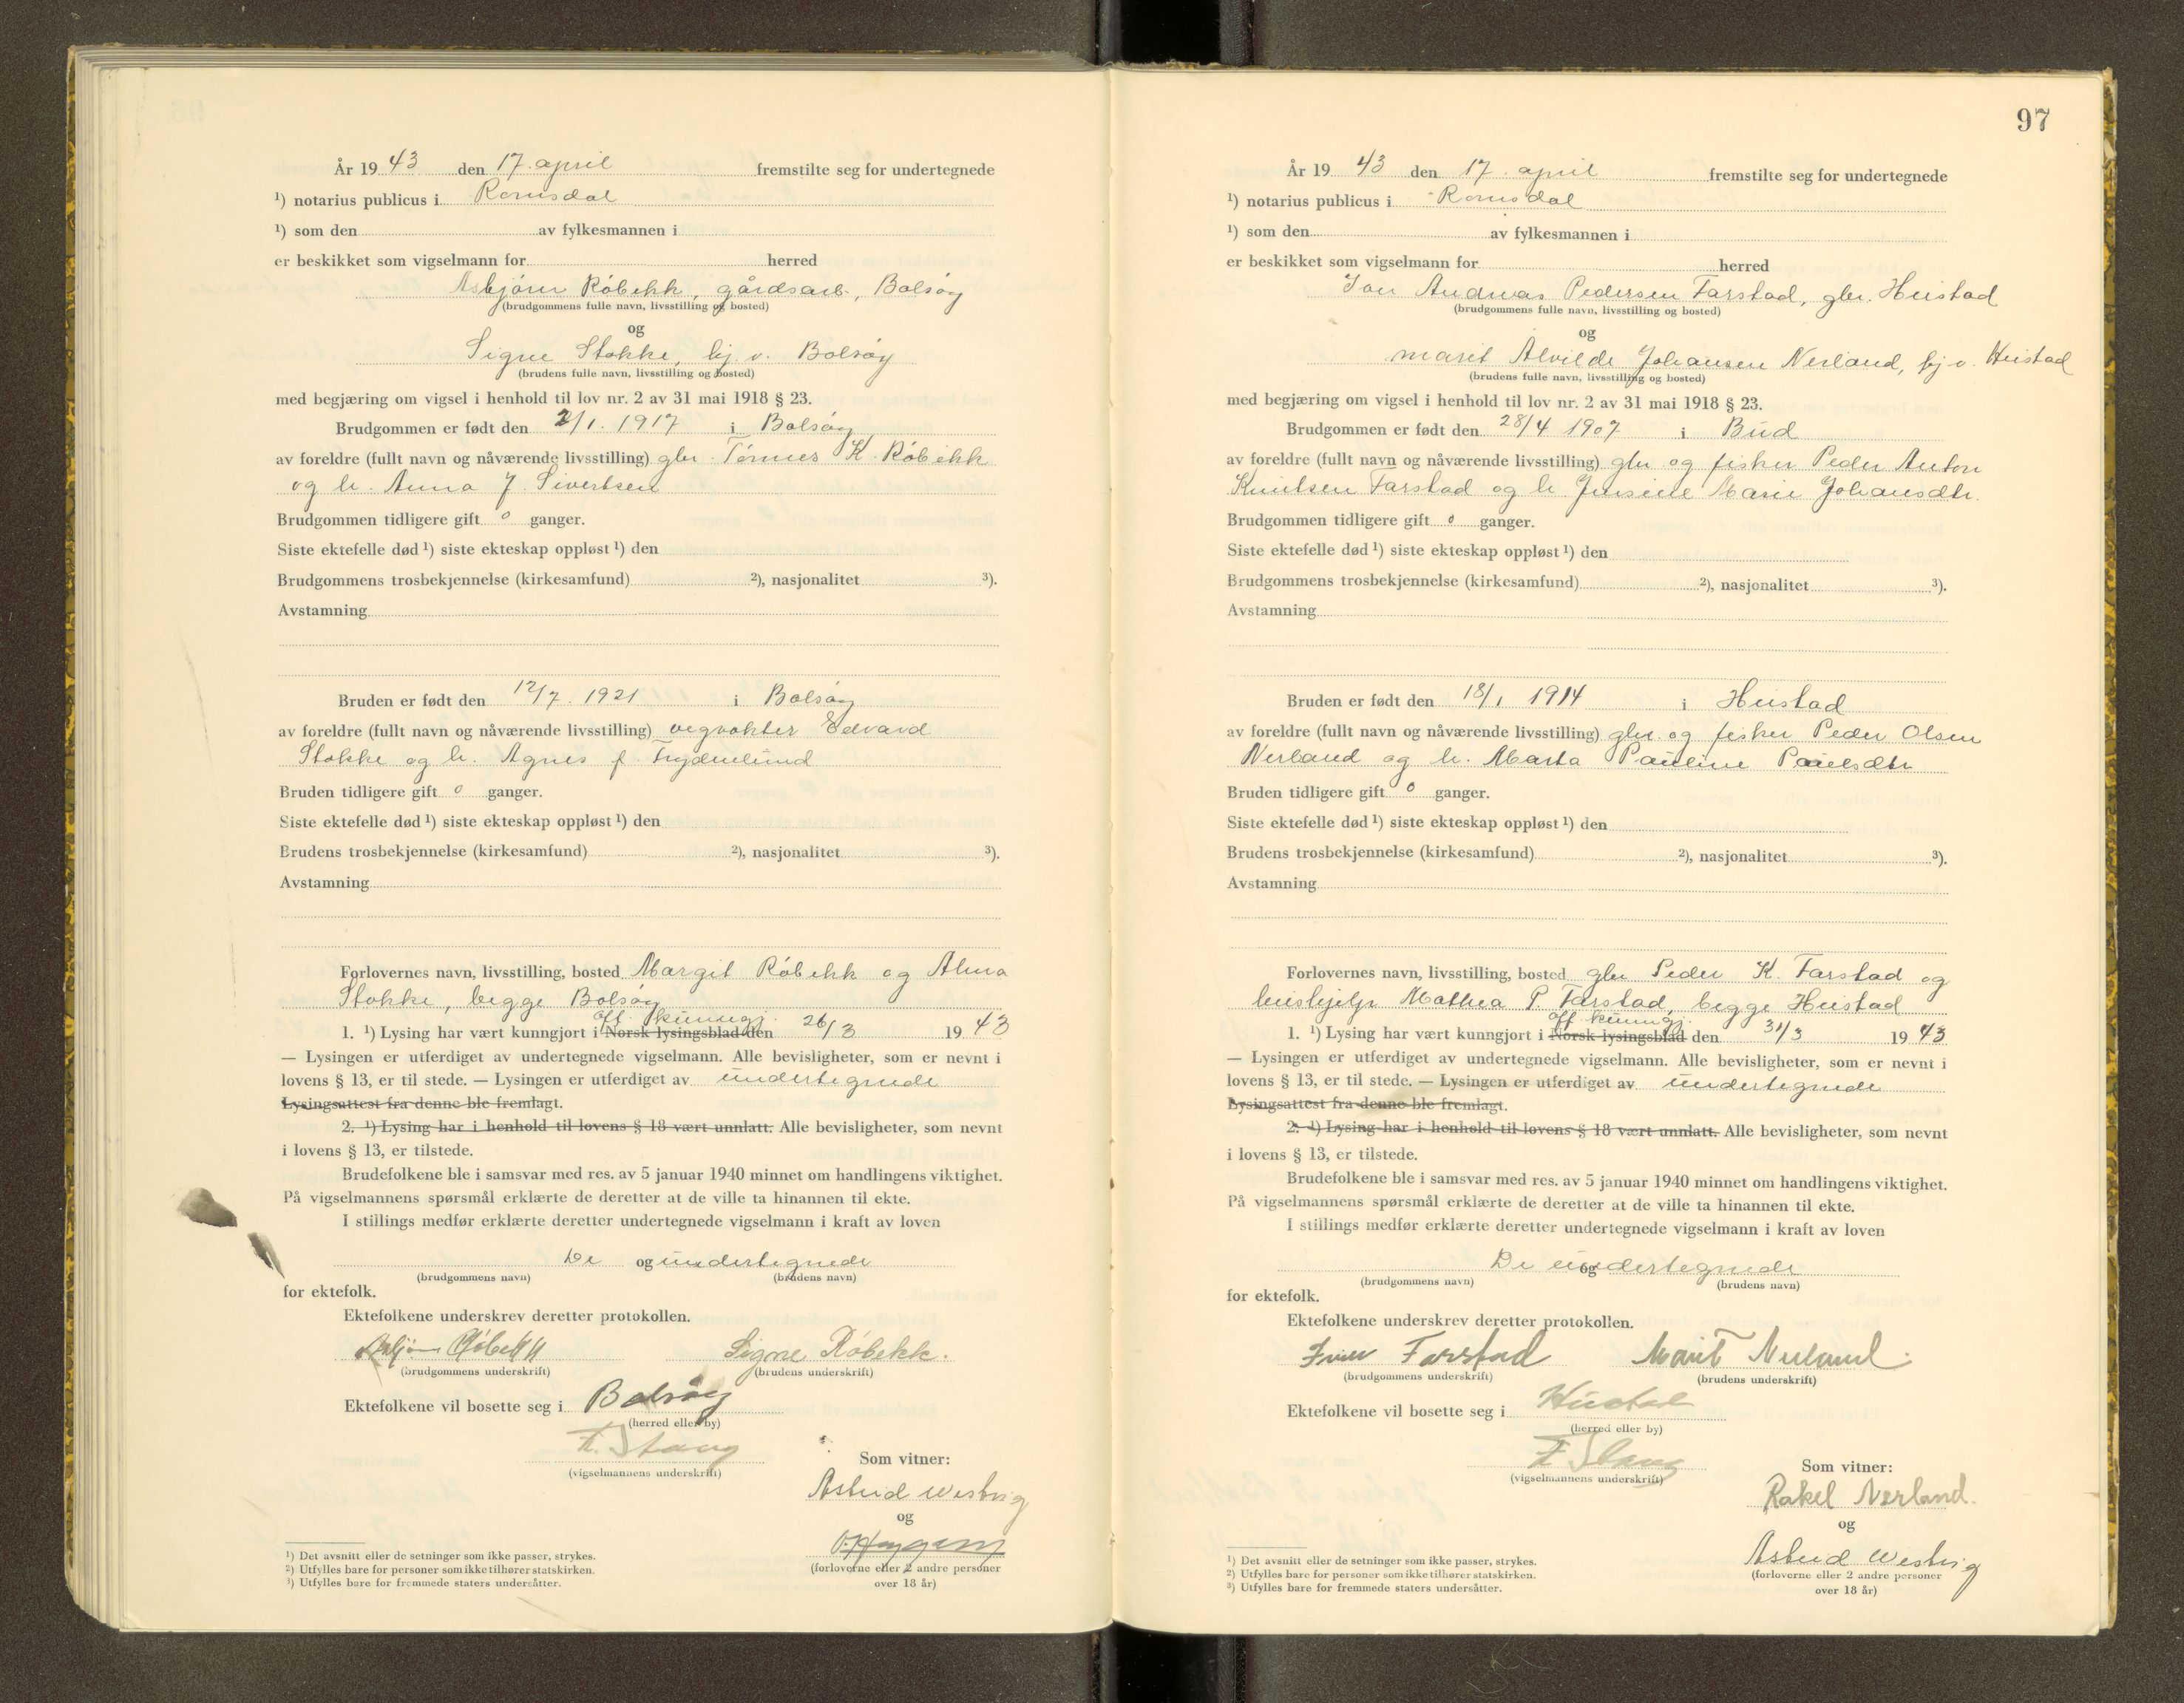 År 19 43 den 17. april fremstilte seg for undertegnede
¹) notarius publicus i Romsdal
¹) som den av fylkesmannen i
er beskikket som vigselmann for herred
Asbjörn Röbekk, gårdsarb., Bolsöy
(brudgommens fulle navn, livsstilling og bosted)
og
Signe Stokke, hj. v. Bolsöy
(brudens fulle navn, livsstilling og bosted)
med begjæring om vigsel i henhold til lov nr. 2 av 31 mai 1918 § 23.
Brudgommen er født den 2/1. 1917 i Bolsöy
av foreldre (fullt navn og nåværende livsstilling) gbr. Tönnes K. Röbekk
og h. Anna J. Sivertsen
Brudgommen tidligere gift 0 ganger.
Siste ektefelle død ¹) siste ekteskap oppløst ¹) den
Brudgommens trosbekjennelse (kirkesamfund) ²), nasjonalitet ³).
Avstamning
Bruden er født den 12/7. 1921 i Bolsöy
av foreldre (fullt navn og nåværende livsstilling) vegvokter Edvard
Stokke og h. Agnes f. Frydenlund
Bruden tidligere gift 0 ganger.
Siste ektefelle død ¹) siste ekteskap oppløst ¹) den
Brudens trosbekjennelse (kirkesamfund) ²), nasjonalitet ³).
Avstamning
Forlovernes navn, livsstilling, bosted Margit Röbekk og Alma
Stokke, begge Bolsöy
off. kunngj.
1. ¹) Lysing har vært kunngjort i Norsk lysingsblad den 26/3 19 43
— Lysingen er utferdiget av undertegnede vigselmann. Alle bevisligheter, som er nevnt i
lovens § 13, er til stede. — Lysingen er utferdiget av undertegnede
Lysingsattest fra denne ble fremlagt.
2. ¹) Lysing har i henhold til lovens § 18 vært unnlatt. Alle bevisligheter, som nevnt
i lovens § 13, er tilstede.
Brudefolkene ble i samsvar med res. av 5 januar 1940 minnet om handlingens viktighet.
På vigselmannens spørsmål erklærte de deretter at de ville ta hinannen til ekte.
I stillings medfør erklærte deretter undertegnede vigselmann i kraft av loven
De og undertegnede
(brudgommens navn) (brudens navn)
for ektefolk.
Ektefolkene underskrev deretter protokollen.
Asbjörn Röbekk Signe Röbekk.
(brudgommens underskrift) (brudens underskrift)
Ektefolkene vil bosette seg i Bolsöy
(herred eller by)
Stang
(vigselmannens underskrift)
Som vitner:
Astrid Westvig
og
(forloverne eller 2 andre personer
over 18 år)
¹) Det avsnitt eller de setninger som ikke passer, strykes.
²) Utfylles bare for personer som ikke tilhører statskirken.
³) Utfylles bare for fremmede staters undersåtter.
97
År 19 43 den 17. april fremstilte seg for undertegnede
¹) notarius publicus i Romsdal
¹) som den av fylkesmannen i
er beskikket som vigselmann for herred
Andreas Pedersen Farstad, gbr. Hustad
(brudgommens fulle navn, livsstilling og bosted)
og
Marit Alvilde Johansen Nerland, hj v. Hustad
(brudens fulle navn, livsstilling og bosted)
med begjæring om vigsel i henhold til lov nr. 2 av 31 mai 1918 § 23.
Brudgommen er født den 28/4 1907 i Bud
av foreldre (fullt navn og nåværende livsstilling) gbr. og fisker Peder Anton
Knutsen Farstad og h. Jensine Marie Johansdtr.
Brudgommen tidligere gift 0 ganger.
Siste ektefelle død ¹) siste ekteskap oppløst ¹) den
Brudgommens trosbekjennelse (kirkesamfund) ²), nasjonalitet ³).
Avstamning
Bruden er født den 18/1 1914 i Hustad
av foreldre (fullt navn og nåværende livsstilling) gbr. og fisker Peder Olsen
Nerland og h. Marta Pauline Paulsdtr
Bruden tidligere gift 0 ganger.
Siste ektefelle død ¹) siste ekteskap oppløst ¹) den
Brudens trosbekjennelse (kirkesamfund) ²), nasjonalitet ³).
Avstamning
Forlovernes navn, livsstilling, bosted gbr Peder K. Farstad og
hushjelp Mathea P. Farstad, begge Hustad
off kunngj.
1. ¹) Lysing har vært kunngjort i Norsk lysingsblad den 31/3 19 43
— Lysingen er utferdiget av undertegnede vigselmann. Alle bevisligheter, som er nevnt i
lovens § 13, er til stede. — Lysingen er utferdiget av undertegnede
Lysingsattest fra denne ble fremlagt.
2. ¹) Lysing har i henhold til lovens § 18 vært unnlatt. Alle bevisligheter, som nevnt
i lovens § 13, er tilstede.
Brudefolkene ble i samsvar med res. av 5 januar 1940 minnet om handlingens viktighet.
På vigselmannens spørsmål erklærte de deretter at de ville ta hinannen til ekte.
I stillings medfør erklærte deretter undertegnede vigselmann i kraft av loven
De undertegnede
og
(brudgommens navn) (brudens navn)
for ektefolk.
Ektefolkene underskrev deretter protokollen.
Farstad Marit Nerland.
(brudgommens underskrift) (brudens underskrift)
Ektefolkene vil bosette seg i Hustad
(herred eller by)
Stang
(vigselmannens underskrift)
Som vitner:
Rakel Nerland.
og
Astrid Westvig
(forloverne eller 2 andre personer
over 18 år)
¹) Det avsnitt eller de setninger som ikke passer, strykes.
²) Utfylles bare for personer som ikke tilhører statskirken.
³) Utfylles bare for fremmede staters undersåtter.